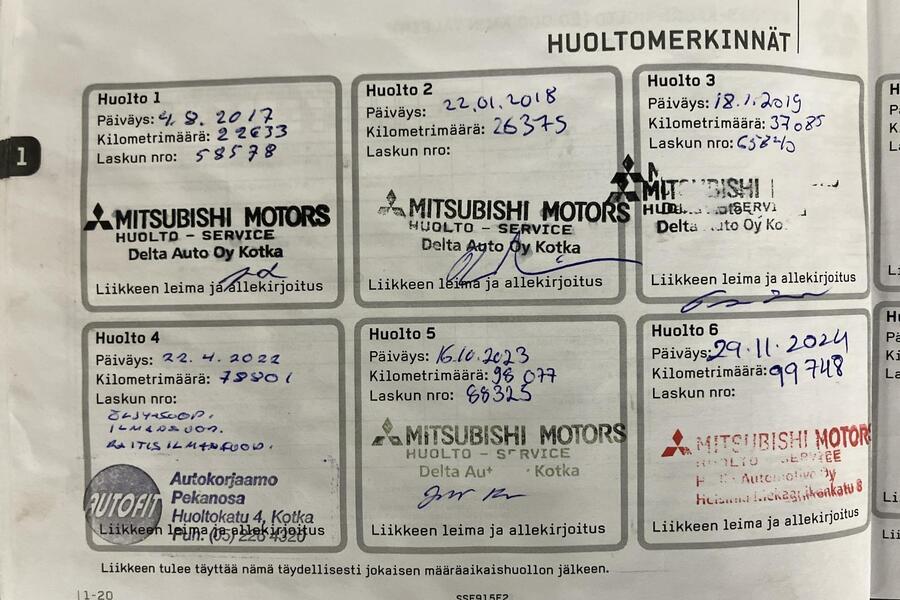 HUOLTOMERKINNÄT
1
Huolto 1
Päiväys: 4.8.2017
Kilometrimäärä: 22633
Laskun nro: 58578
MITSUBISHI MOTORS
HUOLTO - SERVICE
Delta Auto Oy Kotka
Liikkeen leima ja allekirjoitus
Huolto 2
Päiväys: 22.01.2018
Kilometrimäärä: 26375
Laskun nro:
MITSUBISHI MOTORS
HUOLTO - SERVICE
Delta Auto Oy Kotka
Liikkeen leima ja allekirjoitus
Huolto 3
Päiväys: 18.1.2019
Kilometrimäärä: 37085
Laskun nro: 65840
MITSUBISHI
Delta Oy
Liikkeen leima ja allekirjoitus
Huolto 4
Päiväys: 22.4.2022
Kilometrimäärä: 78801
Laskun nro:
ÖLJY+SUOD.
ILMANSUOD.
RAITISILMANSUOD.
AUTOFIT
Autokorjaamo
Pekanosa
Huoltokatu 4, Kotka
Puh. (05) 226 4320
Liikkeen leima ja allekirjoitus
Huolto 5
Päiväys: 16.10.2023
Kilometrimäärä: 98 077
Laskun nro: 88325
MITSUBISHI MOTORS
HUOLTO - SERVICE
Delta Kotka
Liikkeen leima ja allekirjoitus
Huolto 6
Päiväys: 29.11.2024
Kilometrimäärä: 99748
Laskun nro:
MITSUBISHI MOTORS
Automotive Oy
Liikkeen leima ja allekirjoitus
Liikkeen tulee täyttää nämä täydellisesti jokaisen määräaikaishuollon jälkeen.
1-20
SSE915F2